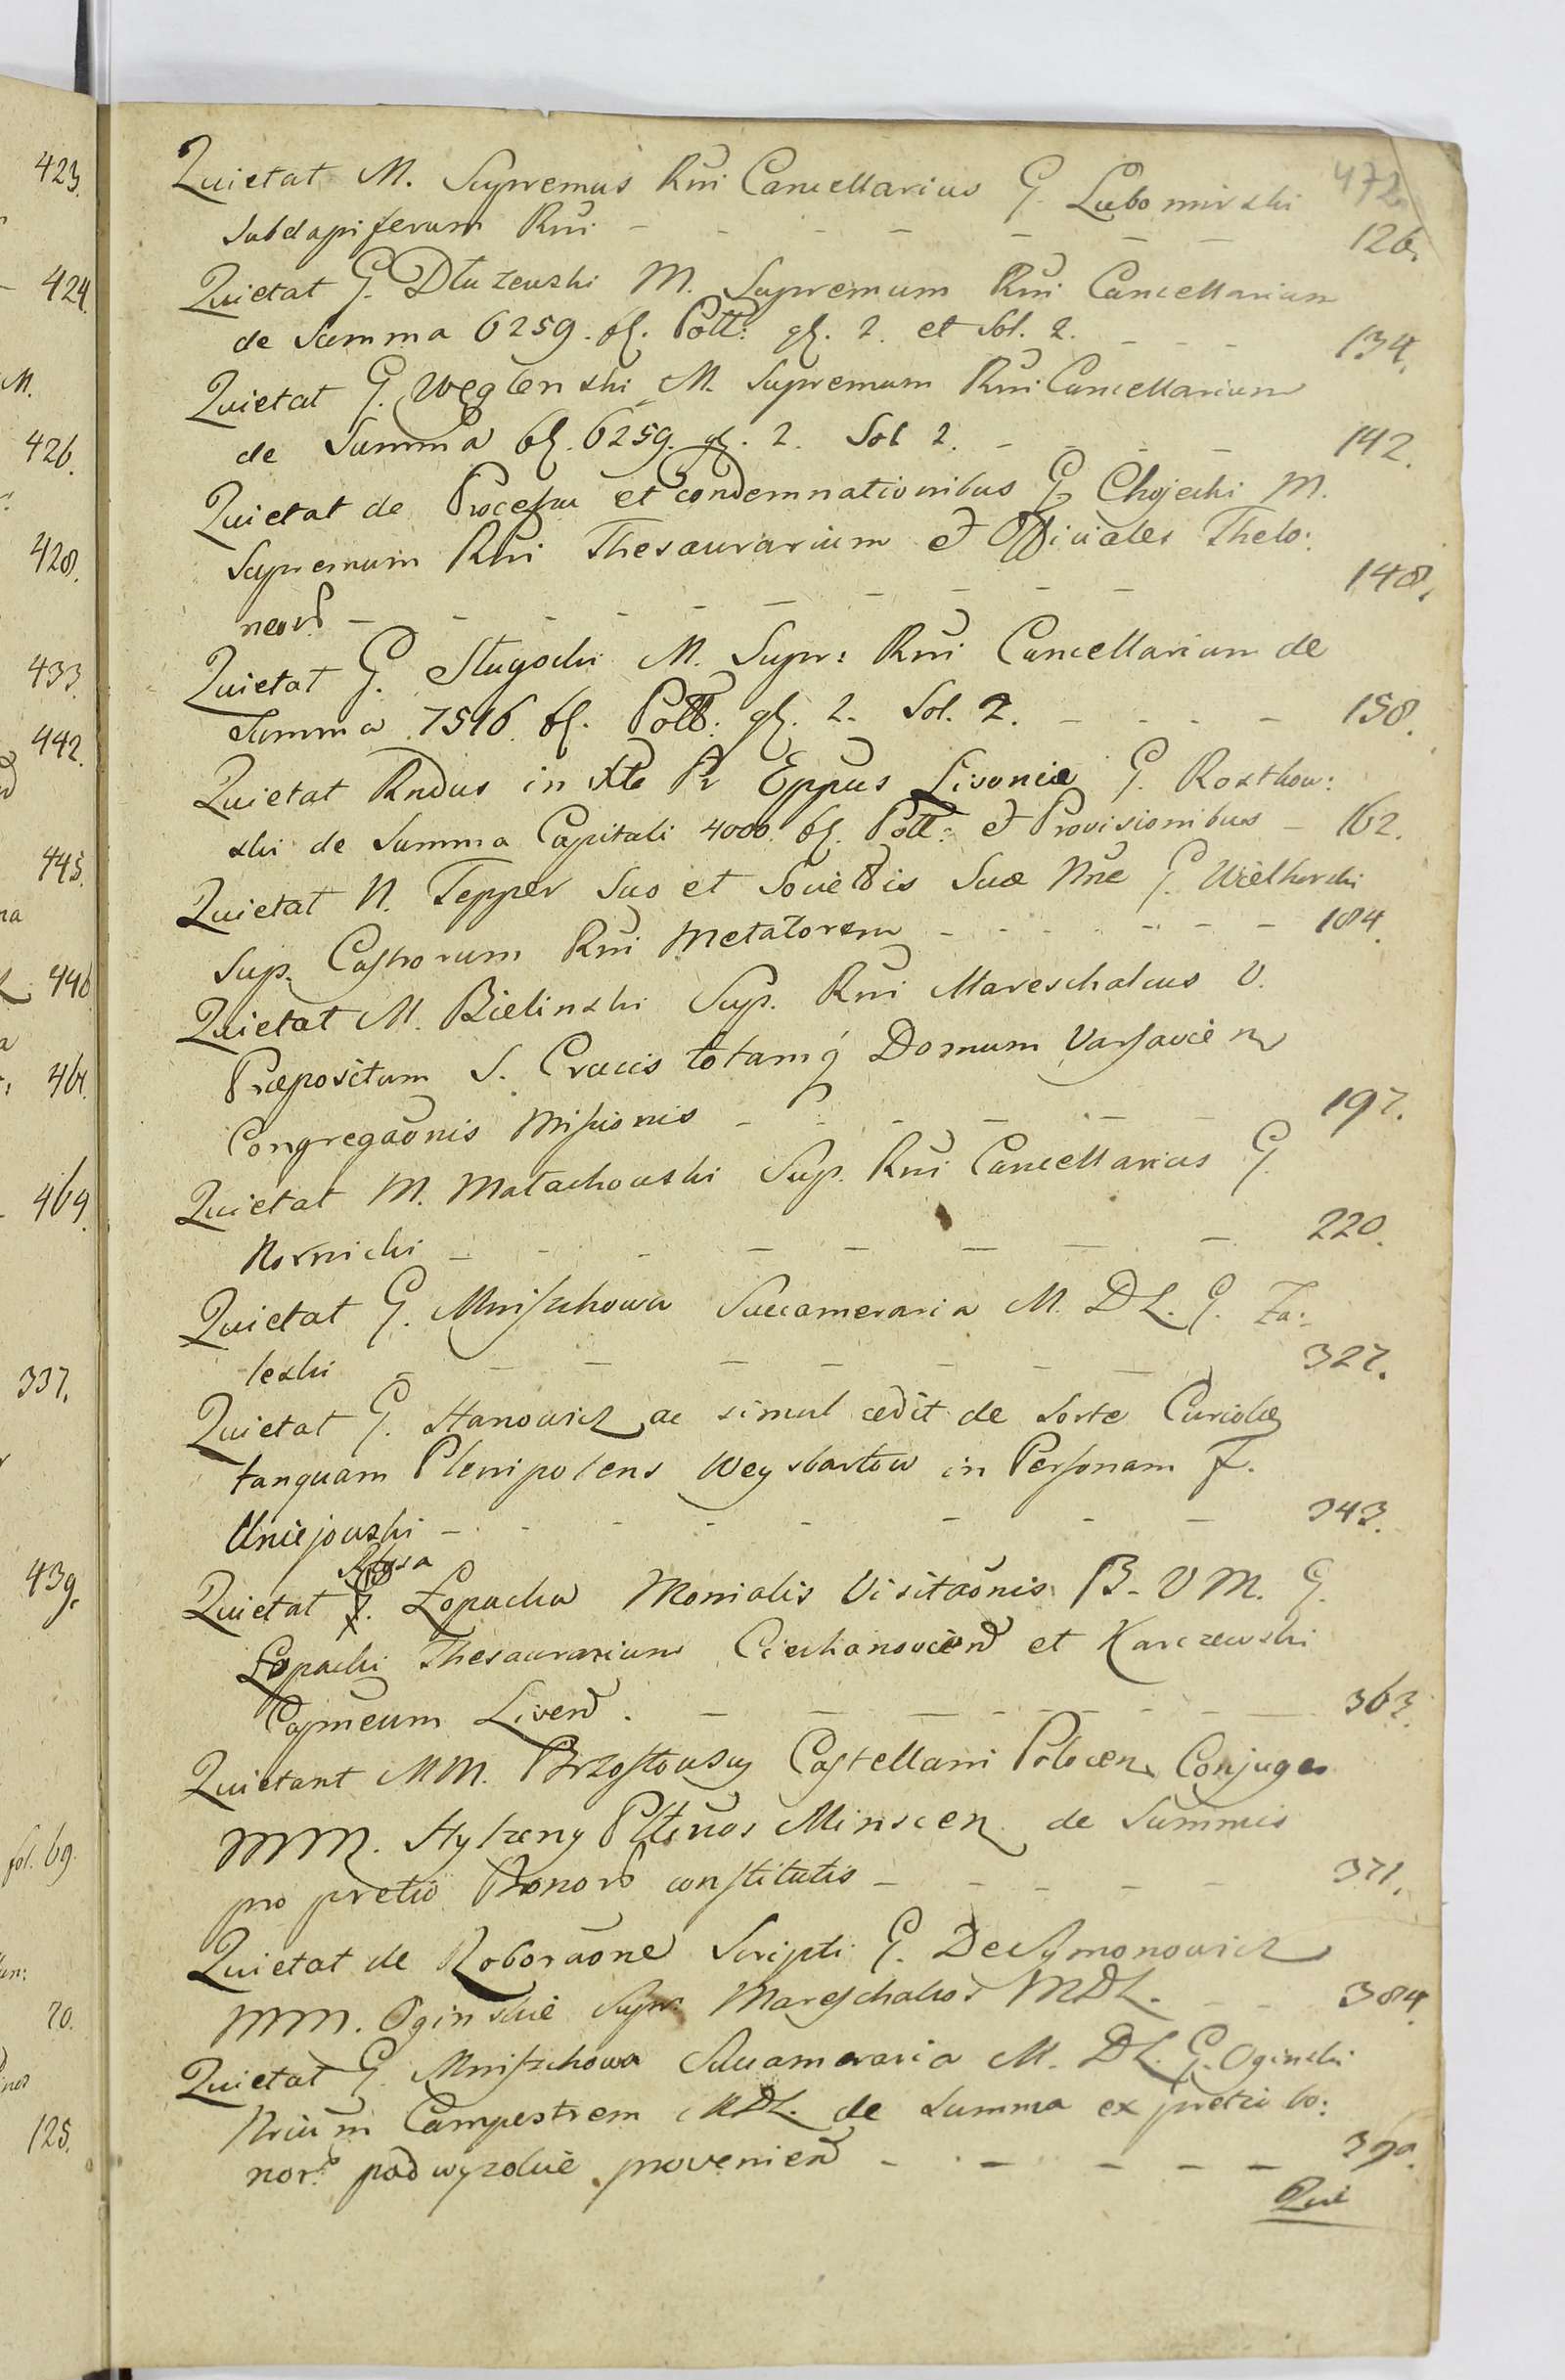 423.
424.
M.
426.
428.
433.
442.
445.
na
446
461.
469.
337.
439.
fol. 69.
70.
125.
472.
Quietat M. Supremus Rni Cancellarius G. Lubomirski
Subdapiferum Rni - - - - - - - 126.
Quietat G. Dłużewski M. Supremum Rni Cancellarium
de Summa 6259. fl. Poll: gl. 2. et Sol. 2. - - - 134.
Quietat G. Węglenski M. Supremum Rni Cancellarium
de Summa fl. 6259. gl. 2. Sol 2. - - - - 142.
Quietat de Processu et condemnationibus G. Chojecki M.
Supremum Rni Thesaurarium et Officiales Thelo:
neor. - - - - - - - - - 148.
Quietat G. Sługocki M. Supr: Rni Cancellarium de
Summa 7516 fl. Poll: gl. 2. Sol. 2. - - - - 158.
Quietat Rndus in Xto Pr Eppus Livoniæ G. Rostkow:
ski de Summa Capitali 4000 fl. Poll: et Provisionibus - 162.
Quietat N. Tepper Suo et Societis Suæ Nne G. Wielhorski
Sup. Castrorum Rni Metatorem - - - - - - - 184.
Quietat M. Bielinski Sup. Rni Mareschalcus V.
Præpositum S. Crucis totamq Domum Varsavien
Congregaonis Missionis - - - - - - 197.
Quietat M. Małachowski Sup. Rni Cancellarius G.
Nornicki - - - - - - - - 220.
Quietat G. Mniszchowa Succameraria M. D L. G. Za:
leski - - - - - - - - 327.
Quietat G. Stanowicz ac simul cedit de Sorte Curiolæ
tanquam Plenipotens Weysbartow in Personam F.
Uniejowski - - - - - - - - 343.
Rlgsa
Quietat G. Łopacka Monialis Visitaonis B. V M. G.
Łopacki Thesaurarium Ciechanovien et Karczewski
Capneum Liven. - - - - - - - 363.
Quietant MM. Brzostowscy Castellani Polocen Conjuges
MM. Hylzeny Pltnos Minscen de Summis
pro pretio Bonor constitutis - - - - - 371.
Quietat de Roboraone Scripti G. DeSymonowicz
MM. Oginskie Supr. Mareschalcos MDL. - - 384.
Quietat G. Mniszchowa Succameraria M. DL. G. Oginski
Nrium Campestrem MDL. de Summa ex pretio bo:
nor. podwyzolue provenien - - - - - 390.
Qui